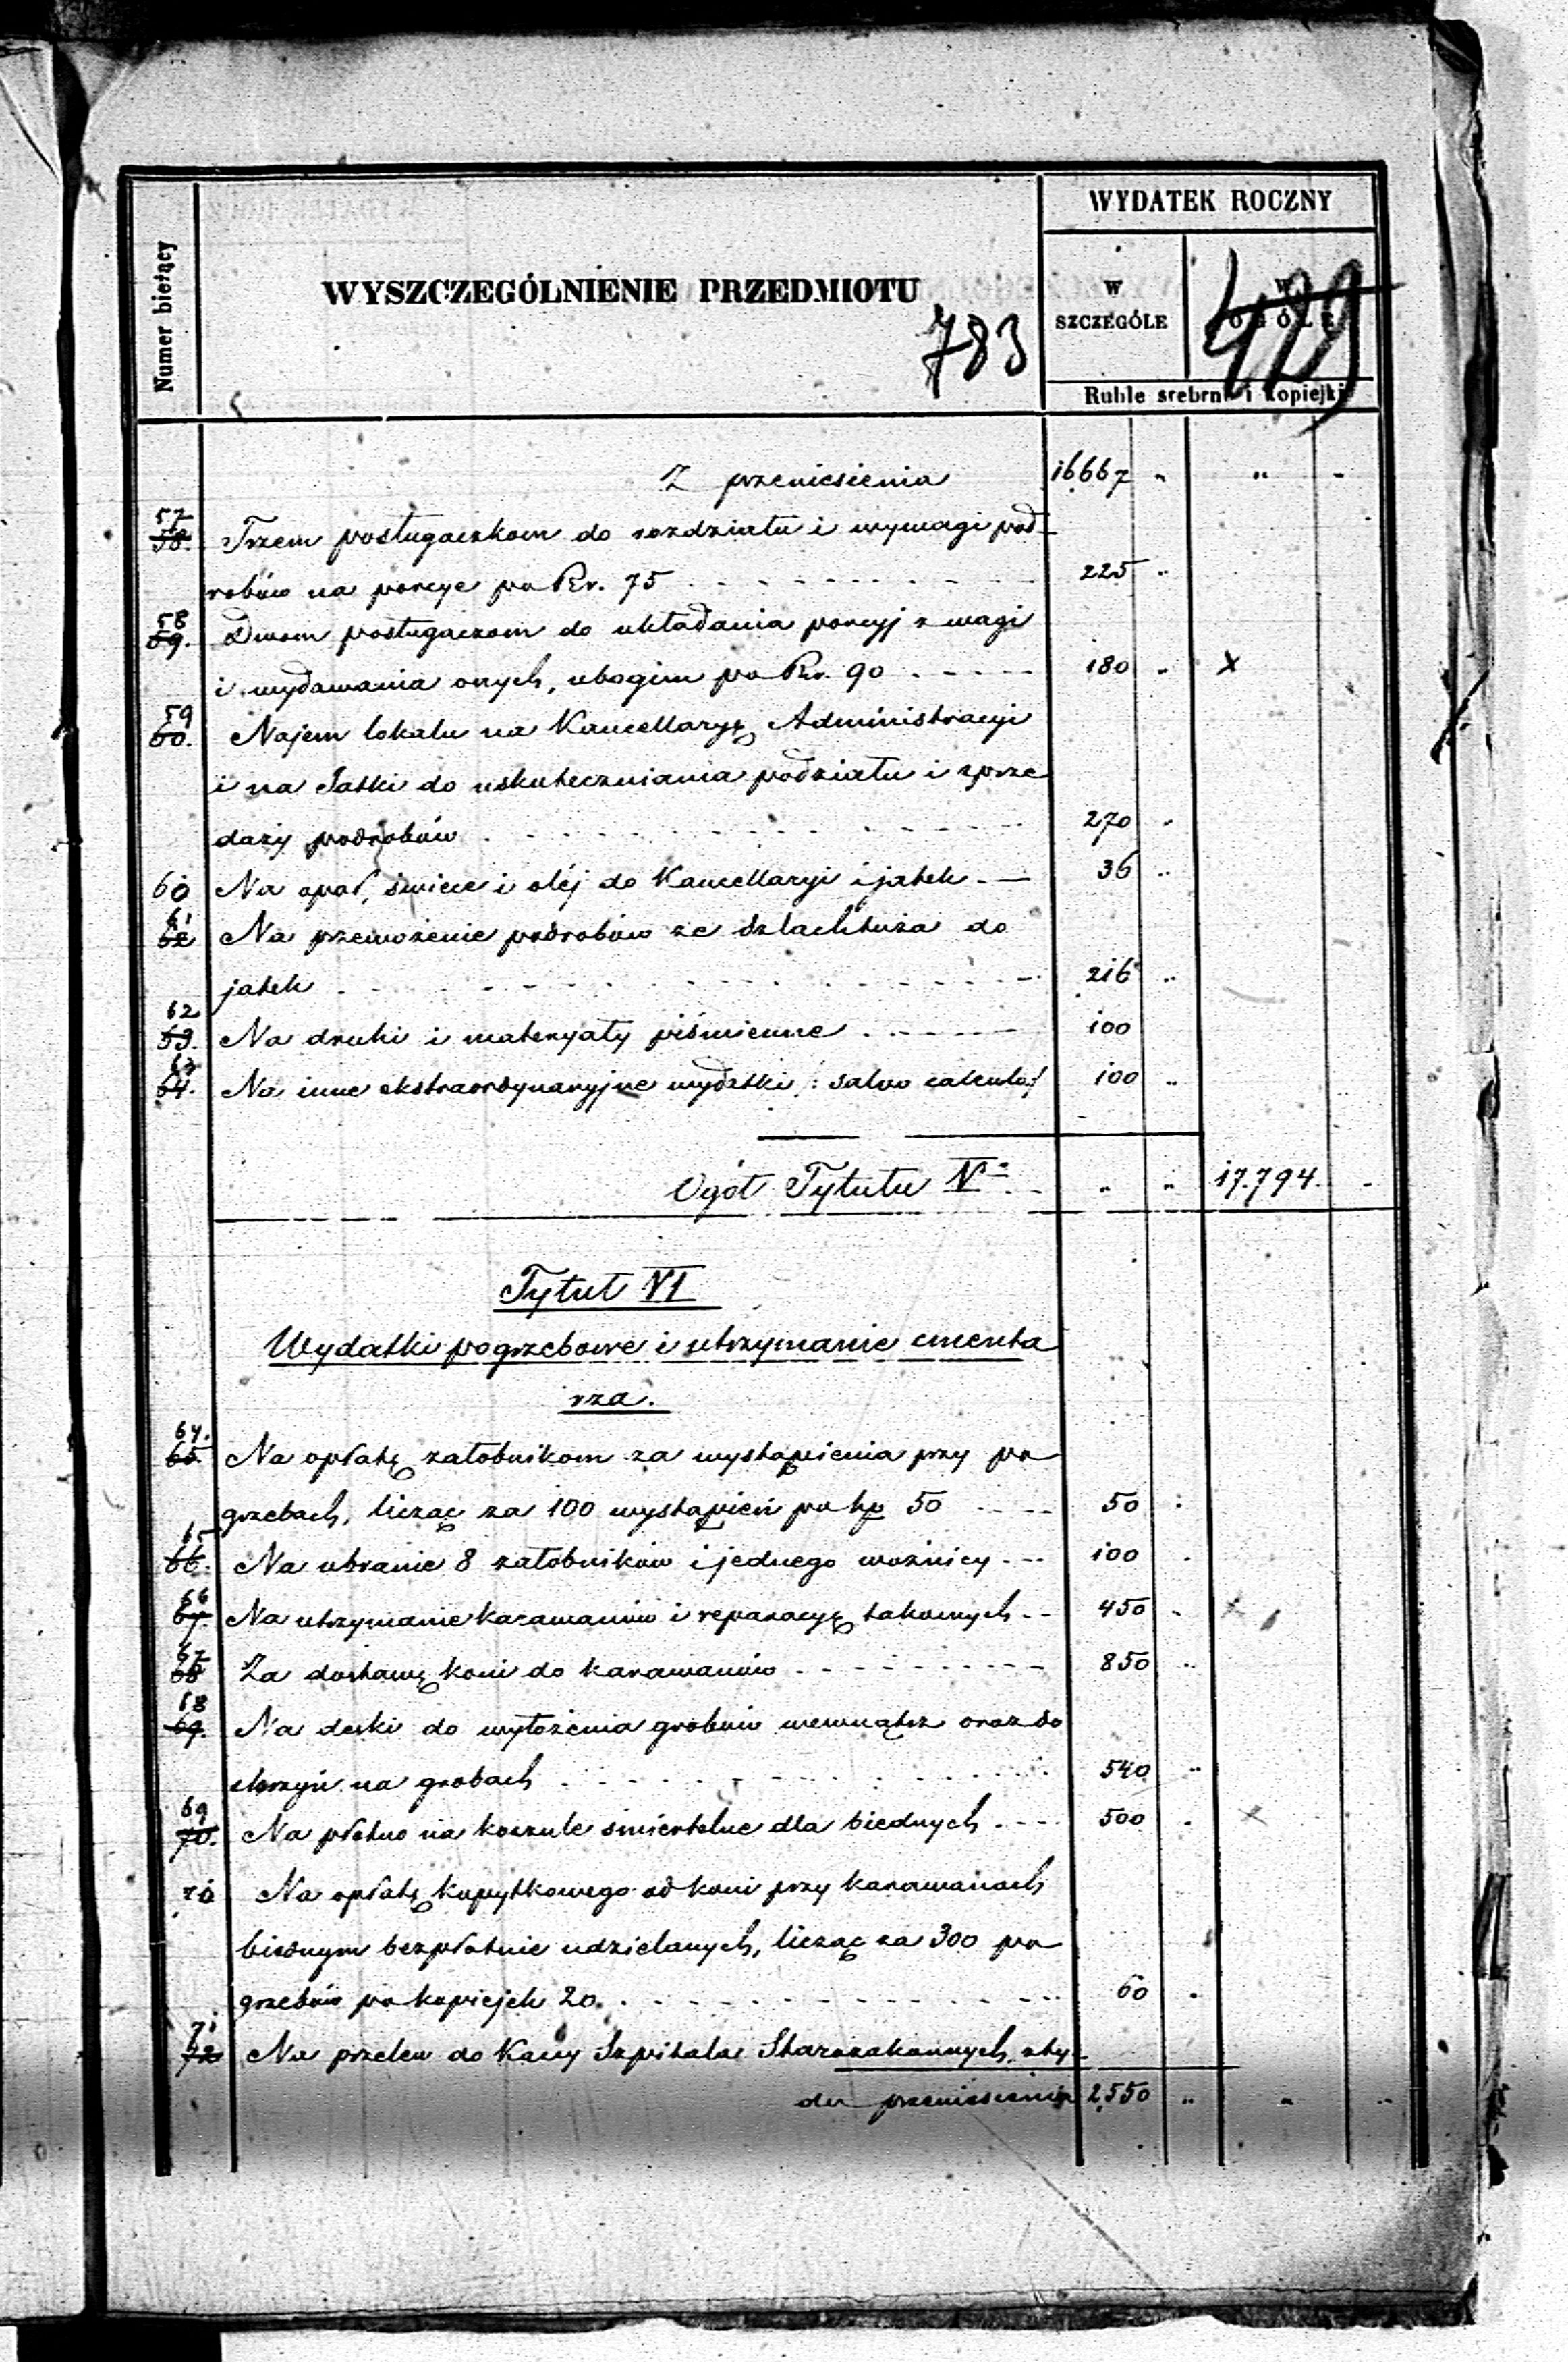 WYDATEK ROCZNY
Numer bieżący
WYSZCZEGÓLNIENIE PRZEDMIOTU
W SZCZEGÓLE
W OGÓLE
783
Ruble srebrne i kopiejki
Z przeniesienia 16667 „ „ „
57 58. Trzem posługaczkom do rozdziału i wymagi pod-
robów na porcye po Rr. 75 225 „
58 59. Dwom posługaczom do układania porcyj z wagi
i wydawania onych, ubogim po Rr. 90 180 „ x
59 60. Najem lokalu na Kancellaryę Administracyi
i na Jatki do uskuteczniania podziału i sprze
daży podrobów 270 „
60 Na opał, świece i olej do Kancellaryi i jatek 36 „
61 62 Na przewożenie podrobów ze Szlachtuza do
jatek 216 „
62 63. Na druki i materyały piśmienne 100
63 64. Na inne ekstraordynaryjne wydatki /: salvo calculo :/ 100 „
Ogół Tytułu V° „ „ 17.794. „
Tytuł VI
Wydatki pogrzebowe i utrzymanie cmenta
rza.
64. 65 Na opłatę żałobnikom za wystąpienia przy po
grzebach, licząc za 100 wystąpień po kp 50 50 „
65 66. Na ubranie 8 żałobników i jednego woźnicy 100 „
66 67. Na utrzymanie karawanów i reparacyę takowych 450 „ x
67 68 Za dostawę koni do karawanów 850 „
68 69. Na deski do wyłożenia grobów wewnątrz oraz do
skrzyń na grobach 540 „
69 70. Na płótno na koszule śmiertelne dla biednych 500 „ x
70 Na opłatę kopytkowego od koni przy karawanach
biednym bezpłatnie udzielanych, licząc za 300 po
grzebów po kopiejek 20. 60 „
71 72 Na przelew do Kassy Szpitala Starozakonnych,
do przeniesienia 2,550 „ „ „